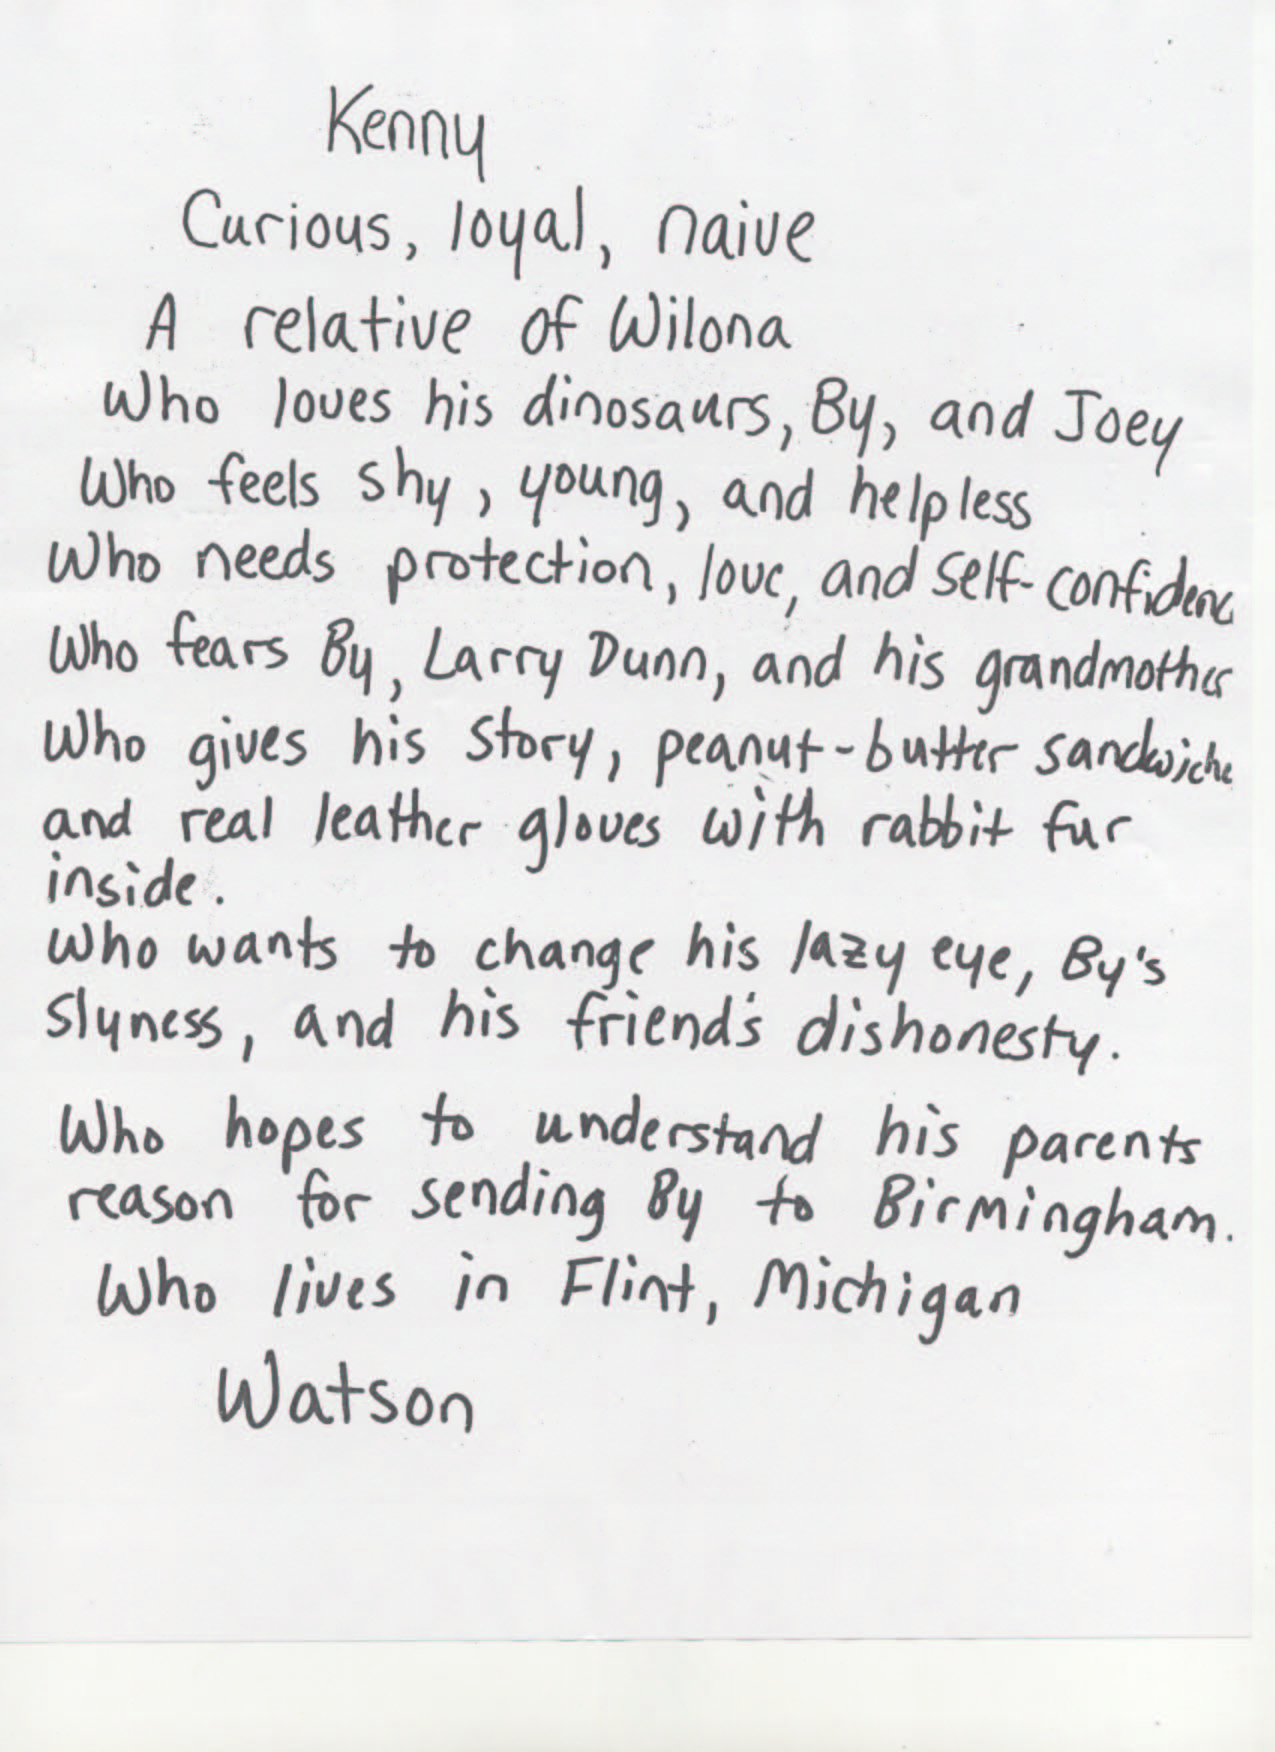 Kenny
Curious, loyal, naive
A relative of Wilona
Who loves his dinosaurs, By, and Joey
Who feels shy, young, and helpless
Who needs protection, love, and self-confidenc
Who fears By, Larry Dunn, and his grandmother
Who gives his story, peanut-butter sandwiche
and real leather gloves with rabbit fur
inside.
Who wants to change his lazy eye, By's
slyness, and his friend's dishonesty.
Who hopes to understand his parents
reason for sending By to Birmingham.
Who lives in Flint, Michigan
Watson